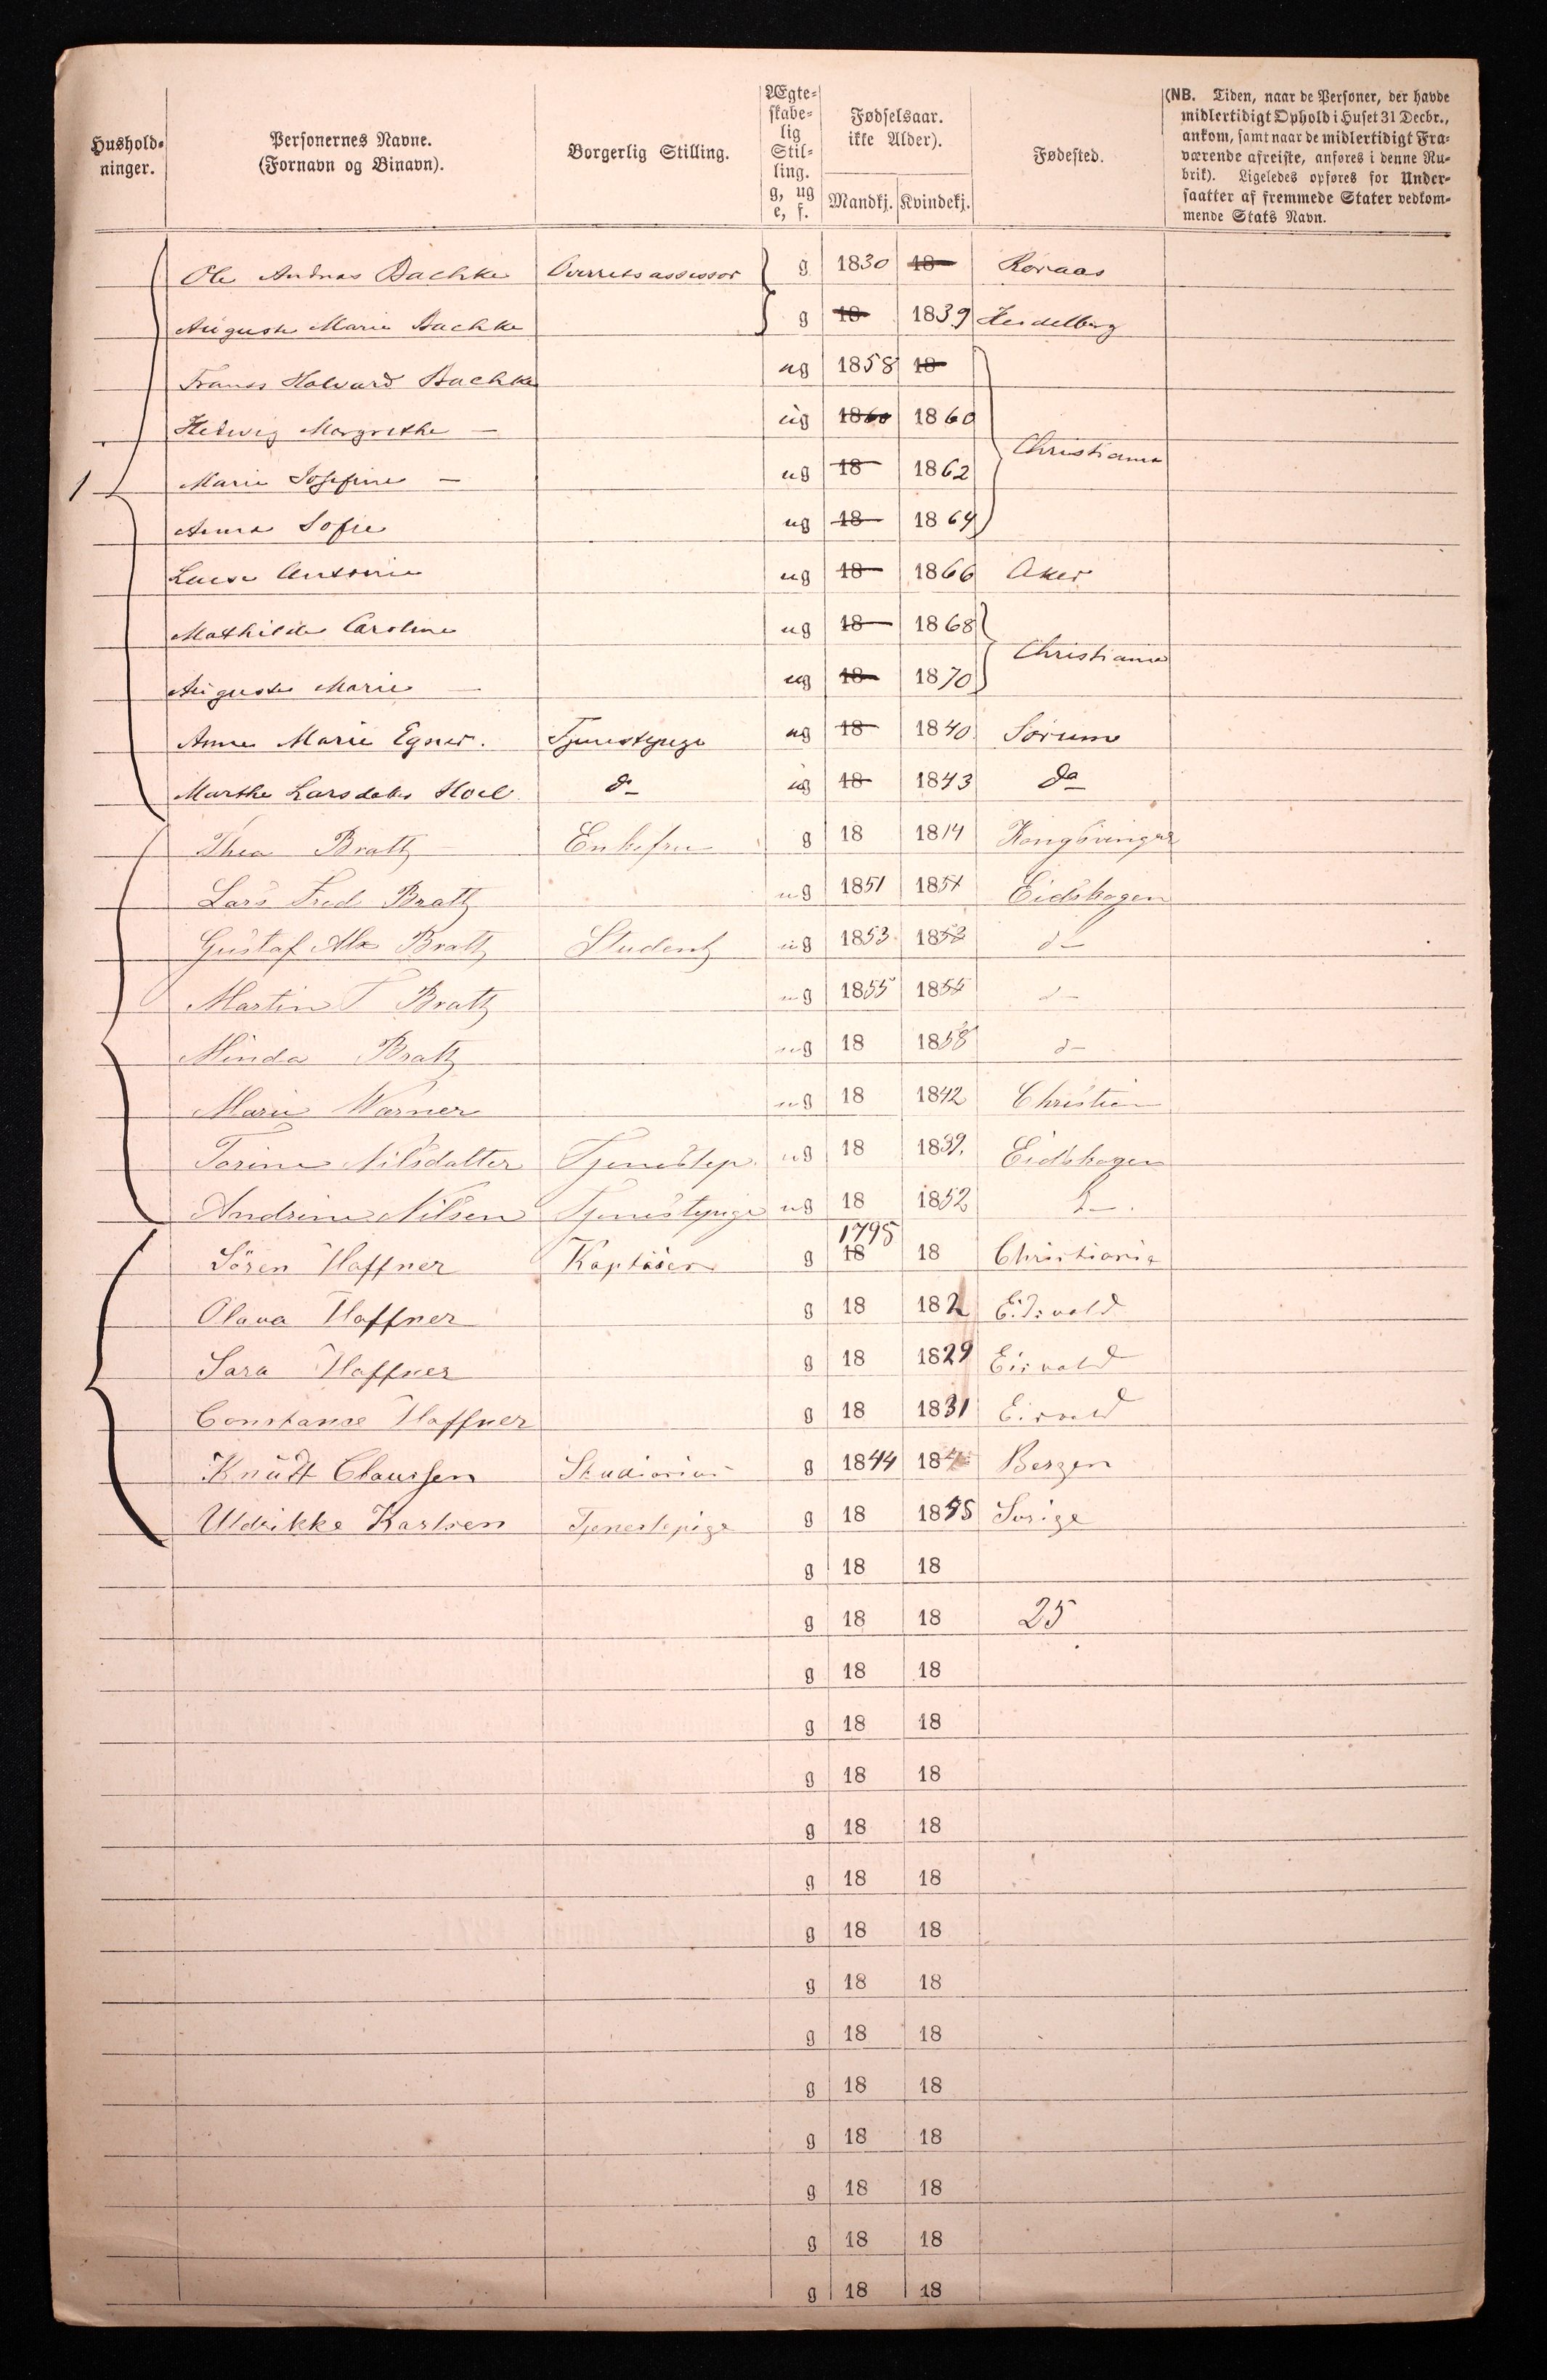 Hushold-
ninger.
Personernes Navne.
(Fornavn og Binavn).
Borgerlig Stilling.
Ægte-
skabe-
lig
Stil-
ling.
g, ug
e, f.
Fødselsaar.
ikke Alder).
Mandkj. Kvindekj.
Fødested.
(NB. Tiden, naar de Personer, der havde
midlertidigt Ophold i Huset 31 Decbr.,
ankom, samt naar de midlertidigt Fra-
værende afreiste, anføres i denne Ru-
brik). Ligeledes opføres for Under-
saatter af fremmede Stater vedkom-
mende Stats Navn.
Ole Andreas Bachke Overretsassessor g 1830 18 Røraas
Auguste Marie Bachke g 18 1839 Heidelberg
Frants Halvard Bachke ug 1858 18
Hedevig Margrethe — ug 1860 1860
1 Marie Josefine — ug 18 1862 Christiania
Anna Sofie ug 18 1864
Antonie ug 18 1866 Aker
Mathilde Caroline ug 18 1868
Auguste Marie — ug 18 1870 Christiania
Anne Marie Egner. Tjenestepige ug 18 1840 Sørum
Marthe Larsdatter Hoel do ug 18 1843 do
Thea Bratt Enkefru g 18 1814 Kongsvinger
Lars Fred Bratt ug 1851 1851 Eidskogen
Gustaf Alx Bratt Student ug 1853 1853 d—
Martin T Bratt ug 1855 1855 d—
Minda Bratt ug 18 1858 d—
Marie Warner ug 18 1842 Christian
Torine Nilsdatter Tjenestep. ug 18 1839. Eidskogen
Andrine Nilsen Tjenestepige ug 18 1852
1795
Sören Haffner Kaptäien g 18 18 Christiania
Olava Haffner g 18 182 Eidsvold
Sara Haffner g 18 1829 Eisvold
Constanse Haffner g 18 1831 Eisvold
Knudt Claussen Studiosius g 1844 184 Bergen
Uldrikke Karlsen Tjenestepige g 18 1855 Sverige
g 18 18
g 18 18 25
g 18 18
g 18 18
g 18 18
g 18 18
g 18 18
g 18 18
g 18 18
g 18 18
g 18 18
g 18 18
g 18 18
g 18 18
g 18 18